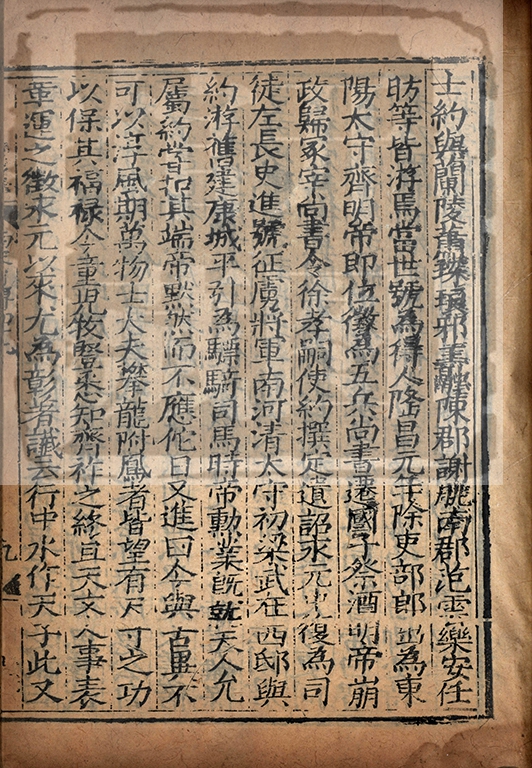 士約與蘭陵蕭琛琅邪王融陳郡謝朓南郡范雲樂安任
昉等皆游焉當世號為得人隆昌元年除吏部郎出為東
陽太守齊明帝即位徵為五兵尚書遷國子祭酒明帝崩
政歸冢宰尚書令徐孝嗣使約撰定遺詔永元中復為司
徒左長史進號征虜將軍南河清太守初梁武在西邸與
約游舊建康城平引為驃騎司馬時帝勳業既就天人允
屬約嘗扣其端帝默然而不應佗日又進曰今與古異不
可以淳風期萬物士大夫攀龍附鳳者皆望有尺寸之功
以保其福祿今童兒牧豎悉知齊祚之終且天文人事表
革運之徵永元以來尤為彰著讖云行中水作天子此又